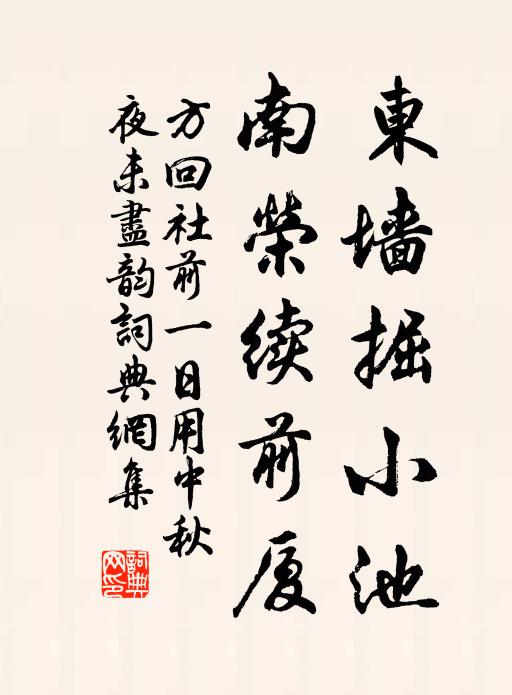 東墙掘小池
南榮续前厦
方回社前一日用中秋
夜未盡韵詞典網集
詞典网印